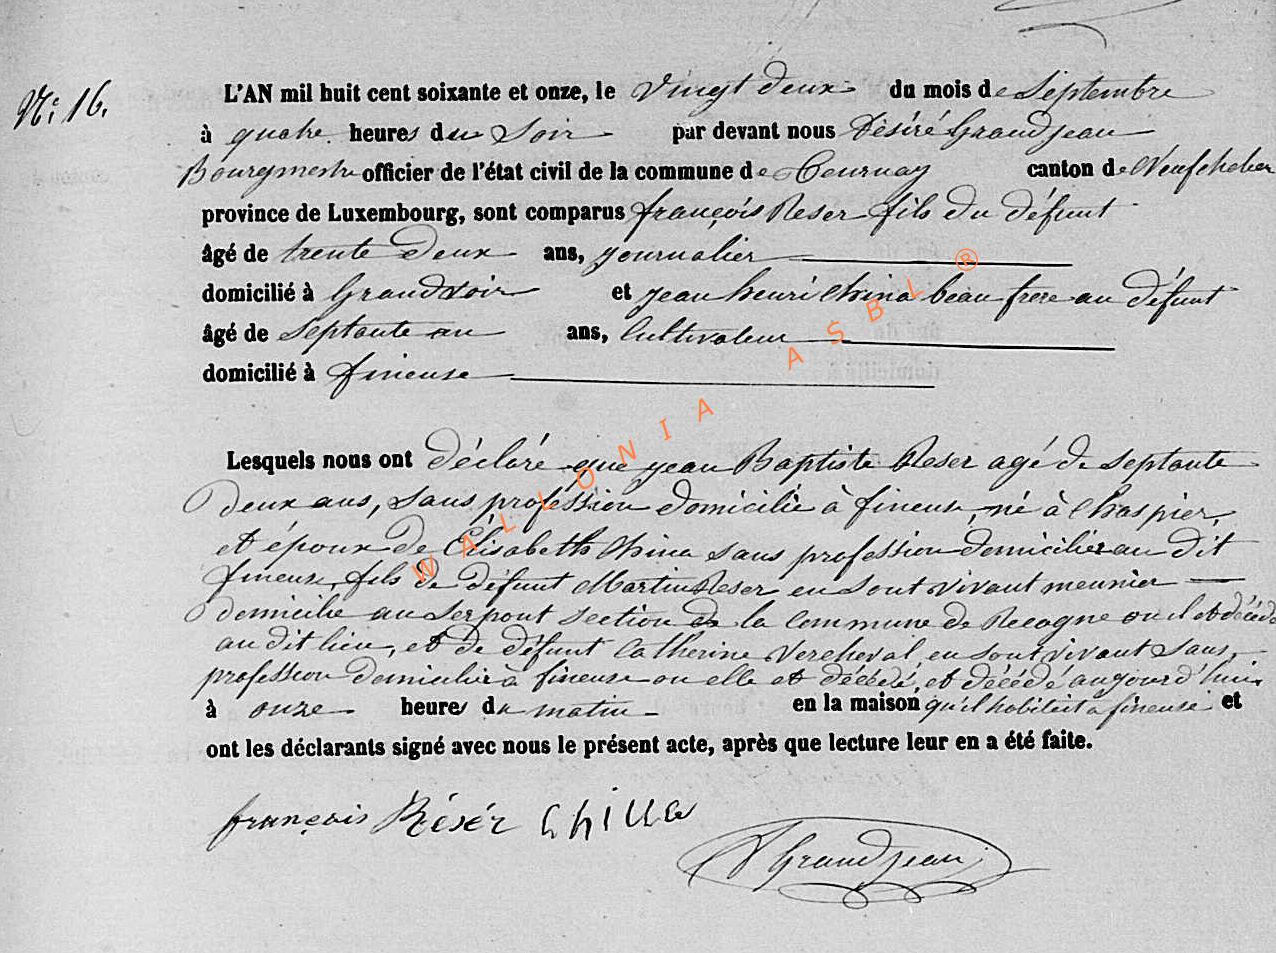 N.° 16.
L'AN mil huit cent soixante et onze, le vingt deux du mois de Septembre
à quatre heures du Soir par devant nous Désiré Grandjean
Bourgmestre officier de l'état civil de la commune de Tournay canton de Neufchateau
province de Luxembourg, sont comparus françois Reser fils du défunt
âgé de trente deux ans, journalier
domicilié à Grandvoir et jean henri China beau frere au défunt
âgé de Septante un ans, Cultivateur
domicilié à fineuse
Lesquels nous ont déclaré que jean Baptiste Reser agé de Septante
deux ans, Sans profession domicilié à fineuse, né à Chaspier,
et époux de Elisabeth China sans profession domiciliée au dit
fineuse, fils de défunt Martin Reser en sont vivant meunier
domicilie au Serpont section de la Commune de Recogne ou il et décédé
au dit lieu, et de défunt Catherine Vercheval en sont vivant sans
profession domicilié à fineuse ou elle et décédé, et décédé aujourd'hui
à onze heures du matin en la maison qu'il habitait a fineuse et
ont les déclarants signé avec nous le présent acte, après que lecture leur en a été faite.
françois Résér China
Grandjean
WALLONIA ASBL ®